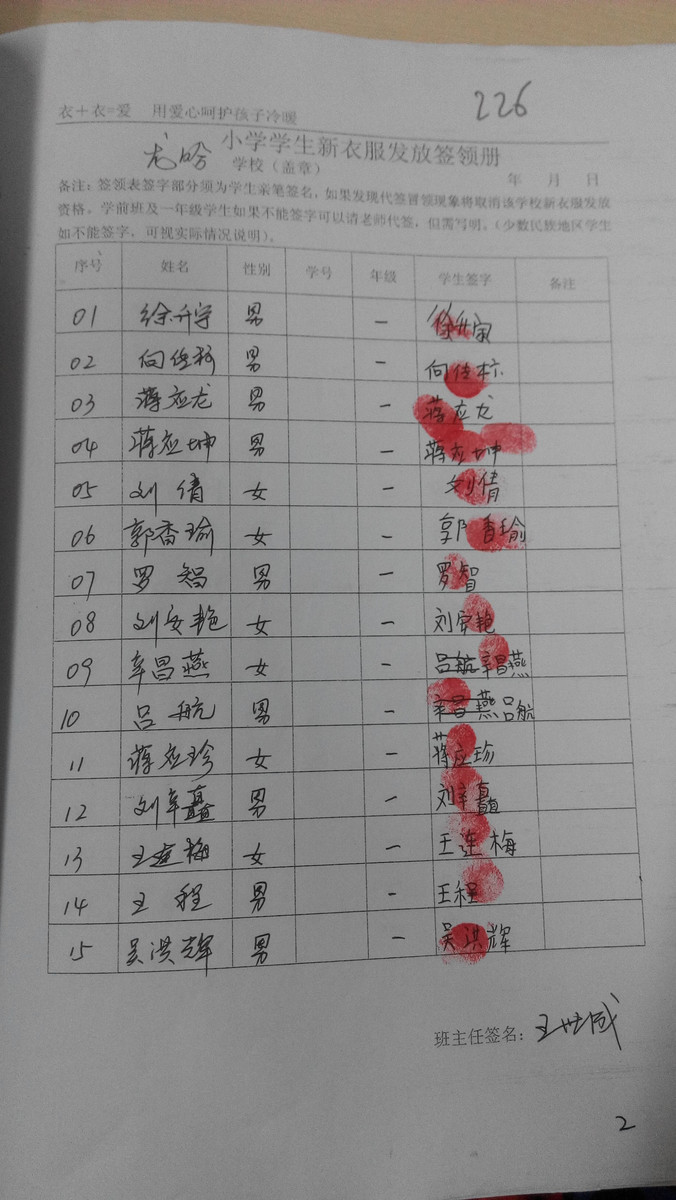 226
衣+衣=爱 用爱心呵护孩子冷暖
小学学生新衣服发放签领册
龙哈 学校（盖章） 年 月 日
备注：签领表签字部分须为学生亲笔签名，如果发现代签冒领现象将取消该学校新衣服发放
资格。学前班及一年级学生如果不能签字可以请老师代签，但需写明。（少数民族地区学生
如不能签字，可视实际情况说明）。
序号 姓名 性别 学号 年级 学生签字 备注
01 徐升宇 男 一 徐升
02 向佳 男 一 向佳
03 蒋应龙 男 一 蒋应龙
04 蒋应坤 男 一 蒋应坤
05 刘倩 女 一 刘倩
06 郭香瑜 女 一 郭香瑜
07 罗智 男 一 罗智
08 刘安艳 女 一 刘安艳
09 辛昌燕 女 一 吕航 辛昌燕
10 吕航 男 一 辛昌燕 吕航
11 蒋应珍 女 一 蒋应珍
12 刘辛矗 男 一 刘辛矗
13 王连梅 女 一 王连梅
14 王程 男 一 王程
15 吴洪辉 男 一 吴洪辉
班主任签名：王世成
2